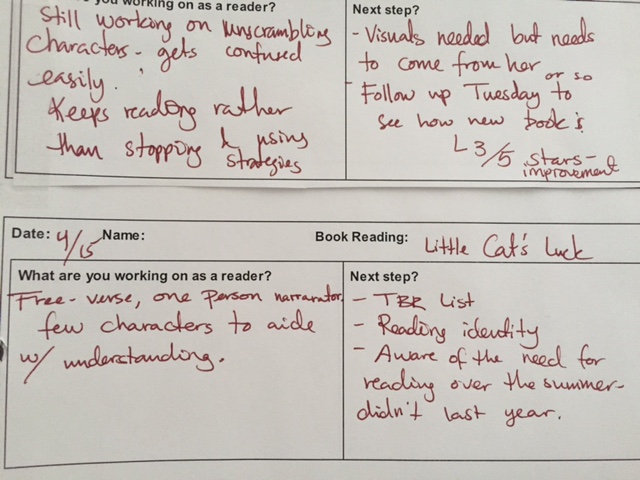 you working on as a reader?
Still working on unscrambling
characters - gets confused
easily.
Keeps reading rather
than stopping & using
strategies
Next step?
- Visuals needed but needs
to come from her
- Follow up Tuesday or so to
see how new book is
↳ 3/5 stars -
improvement
Date: 4/15 Name:
Book Reading: Little Cat's Luck
What are you working on as a reader?
Free-verse, one person narrarator.
few characters to aide
w/ understanding.
Next step?
- TBR List
- Reading identity
- Aware of the need for
reading over the summer-
didn't last year.